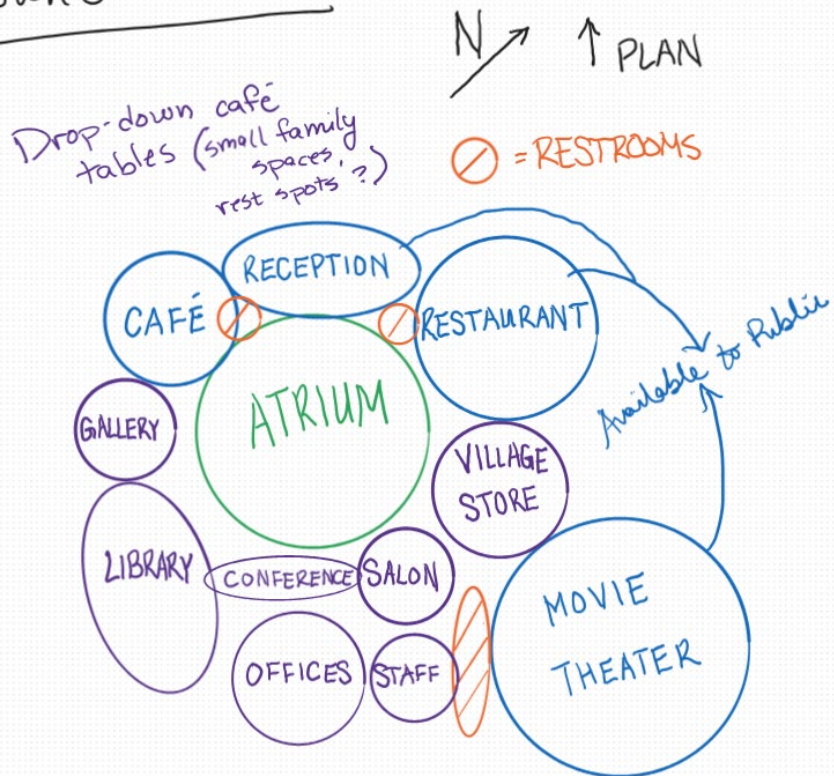 N
↑ PLAN
Drop-down café
tables (small family
spaces,
rest spots?)
= RESTROOMS
RECEPTION
CAFÉ
RESTAURANT
ATRIUM
Available to Public
GALLERY
VILLAGE
STORE
LIBRARY
CONFERENCE
SALON
MOVIE
THEATER
OFFICES
STAFF